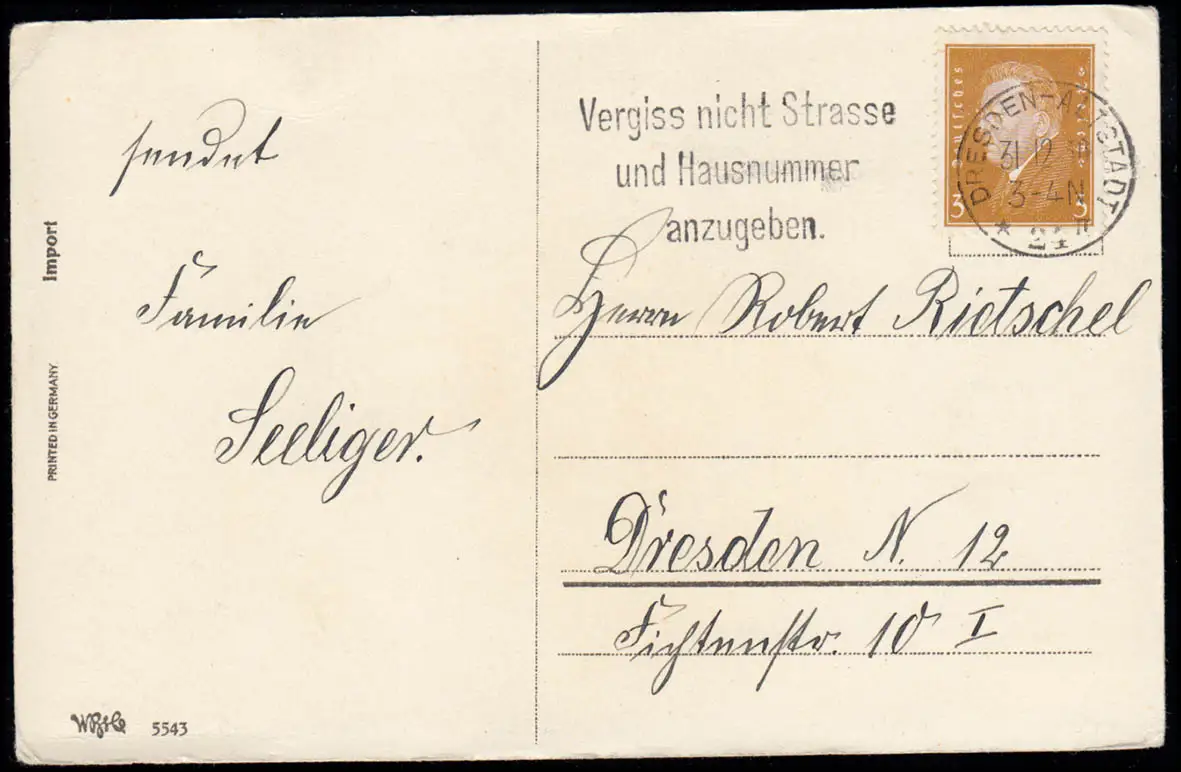 sendet
Familie
Seeliger.
Import
PRINTED IN GERMANY
5543
Vergiss nicht Strasse
und Hausnummer
anzugeben.
Deutsches
3 3
DRESDEN-ALTSTADT
31.12.
3-4N
* 24 n
Herrn Robert Rietschel
Dresden N. 12
Fichtenstr. 10 I